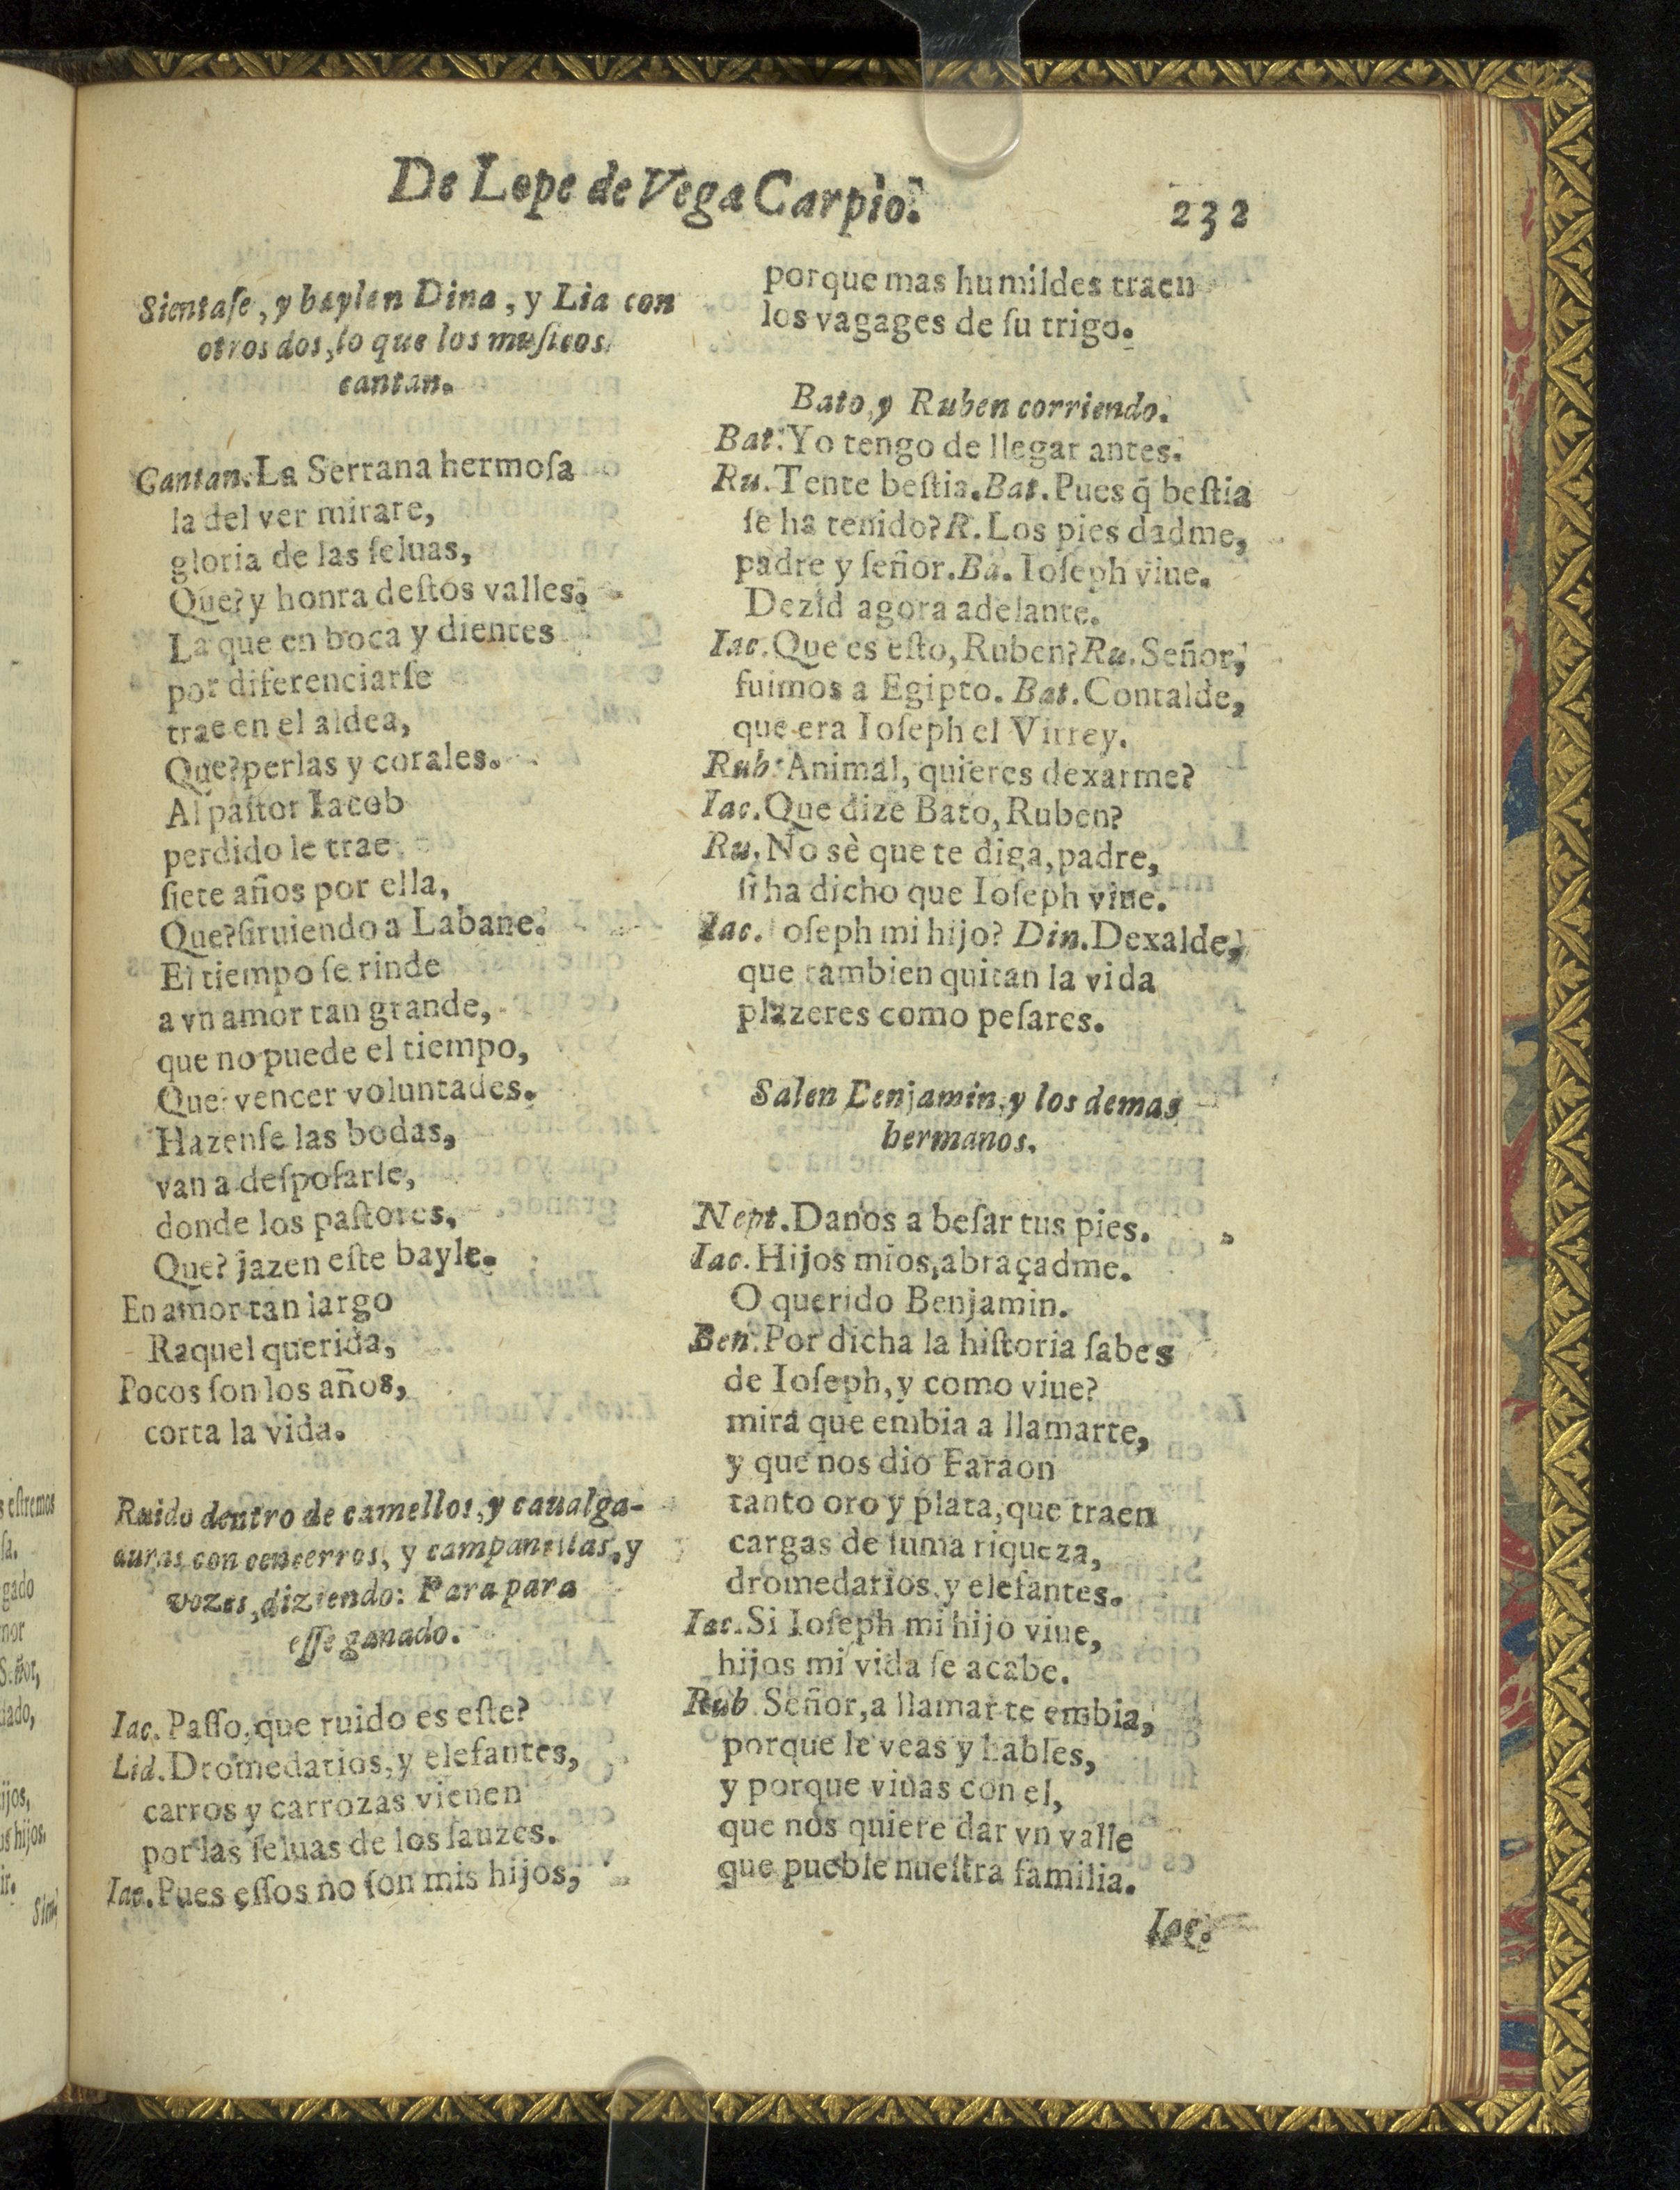 De Lope de Vega Carpio.
232
Sientaſe, y baylen Dina, y Lia con
otros dos, lo que los muſicos
cantan.
Cantan. La Serrana hermoſa
la del ver mirare,
gloria de las ſeluas,
Que? y honra deſtos valles.
La que en boca y dientes
por diferenciarſe
trae en el aldea,
Que? perlas y corales.
Al paſtor Iacob
perdido le trae
ſiete años por ella,
Que? ſiruiendo a Labane.
El tiempo ſe rinde
a vn amor tan grande,
que no puede el tiempo,
Que? vencer voluntades.
Hazenſe las bodas,
van a deſpoſarſe,
donde los paſtores,
Que? jazen eſte bayle.
En amor tan largo
Raquel querida,
Pocos ſon los años,
corta la vida.
Ruido dentro de camellos, y caualga-
duras con cencerros, y campanillas, y
vozes, diziendo: Para para
eſſe ganado.
Iac. Paſſo, que ruido es eſte?
Lid. Dromedarios, y elefantes,
carros y carrozas vienen
por las ſeluas de los ſauzes.
Iac. Pues eſſos no ſon mis hijos,
porque mas humildes traen
los vagages de ſu trigo.
Bato, y Ruben corriendo.
Bat. Yo tengo de llegar antes.
Ru. Tente beſtia. Bat. Pues q̃ beſtia
ſe ha tenido? R. Los pies dadme,
padre y ſeñor. Ba. Ioſeph viue.
Dezid agora adelante.
Iac. Que es eſto, Ruben? Ru. Señor,
fuimos a Egipto. Bat. Contalde,
que era Ioſeph el Virrey.
Rub. Animal, quieres dexarme?
Iac. Que dize Bato, Ruben?
Ru. No sè que te diga, padre,
ſi ha dicho que Ioſeph viue.
Iac. Ioſeph mi hijo? Din. Dexalde,
que tambien quitan la vida
plazeres como peſares.
Salen Benjamin, y los demas
hermanos.
Nept. Danos a beſar tus pies.
Iac. Hijos mios, abraçadme.
O querido Benjamin.
Ben. Por dicha la hiſtoria ſabes
de Ioſeph, y como viue?
mira que embia a llamarte,
y que nos dio Faraon
tanto oro y plata, que traen
cargas de ſuma riqueza,
dromedarios, y elefantes.
Iac. Si Ioſeph mi hijo viue,
hijos mi vida ſe acabe.
Rub. Señor, a llamarte embia,
porque le veas y hables,
y porque viuas con el,
que nos quiere dar vn valle
que pueble nueſtra familia.
Iac.